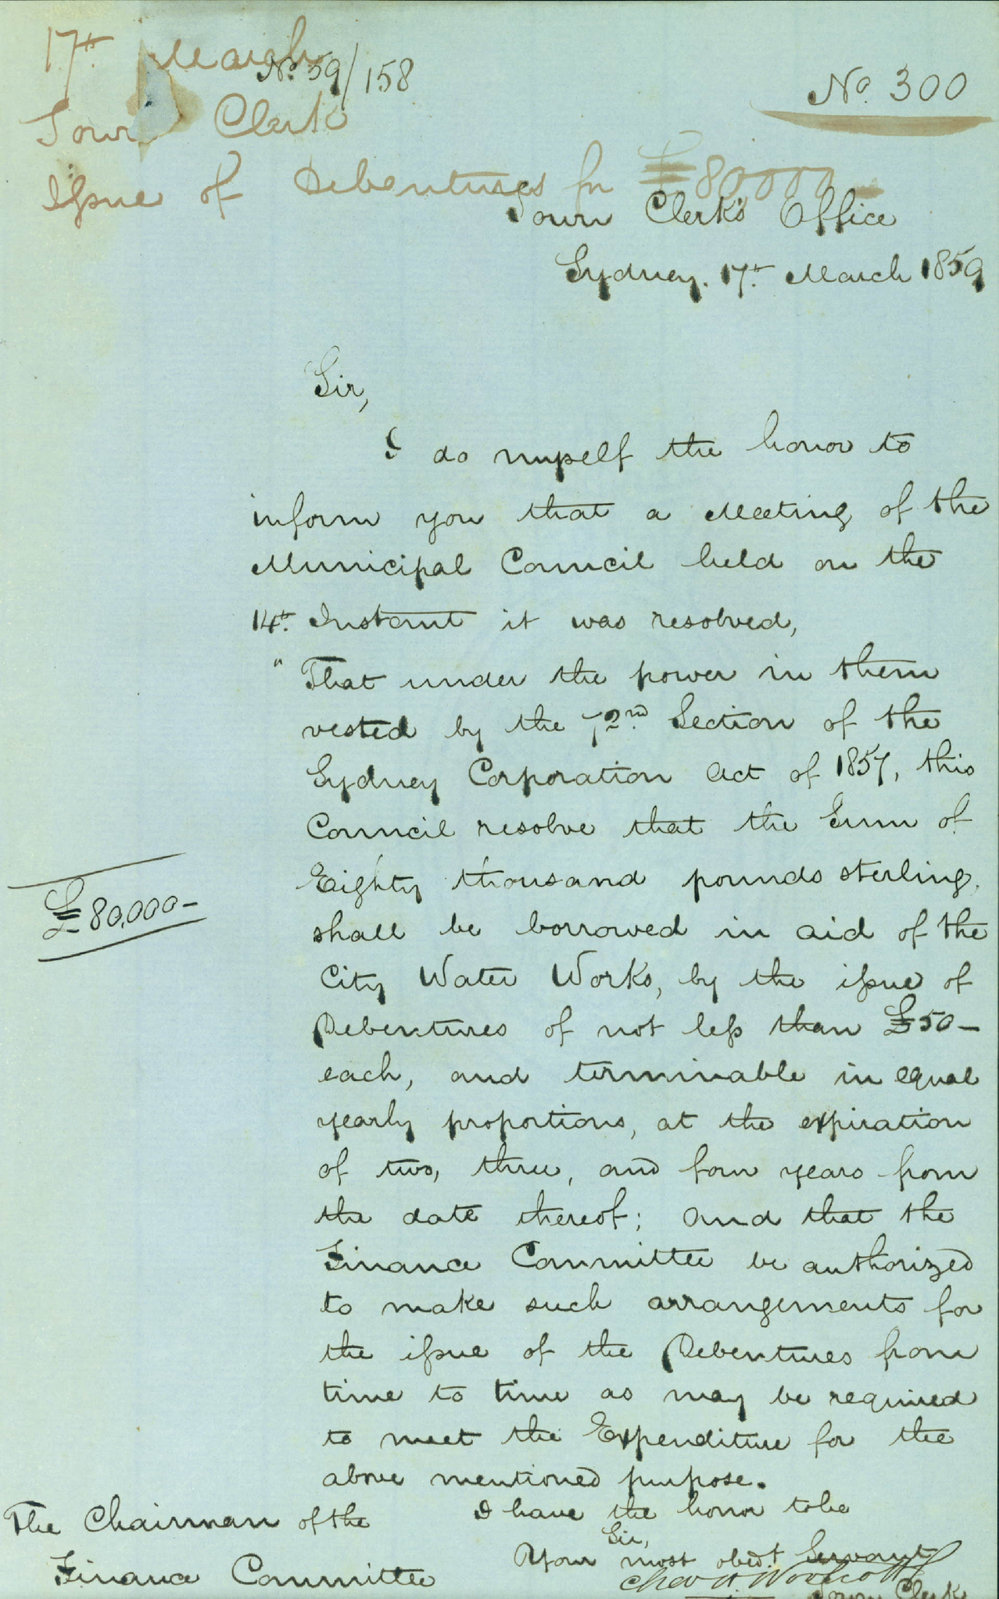 17th March
No. 59/158
No. 300
Town Clerk
Issue of Debentures for £80,000
Town Clerk's Office
Sydney. 17th March 1859
Sir,
I do myself the honor to
inform you that a Meeting of the
Municipal Council held on the
14th Instant it was resolved,
"That under the power in them
vested by the 72nd Section of the
Sydney Corporation Act of 1857, this
Council resolve that the Sum of
Eighty thousand pounds sterling,
£80,000-
shall be borrowed in aid of the
City Water Works, by the issue of
Debentures of not less than £50-
each, and terminable in equal
yearly proportions, at the expiration
of two, three, and four years from
the date thereof; and that the
Finance Committee be authorized
to make such arrangements for
the issue of the Debentures from
time to time as may be required
to meet the Expenditure for the
above mentioned purpose.
I have the honor to be
Sir,
Your most obedt Servant
Chas H. Woolcott
Town Clerk
The Chairman of the
Finance Committee